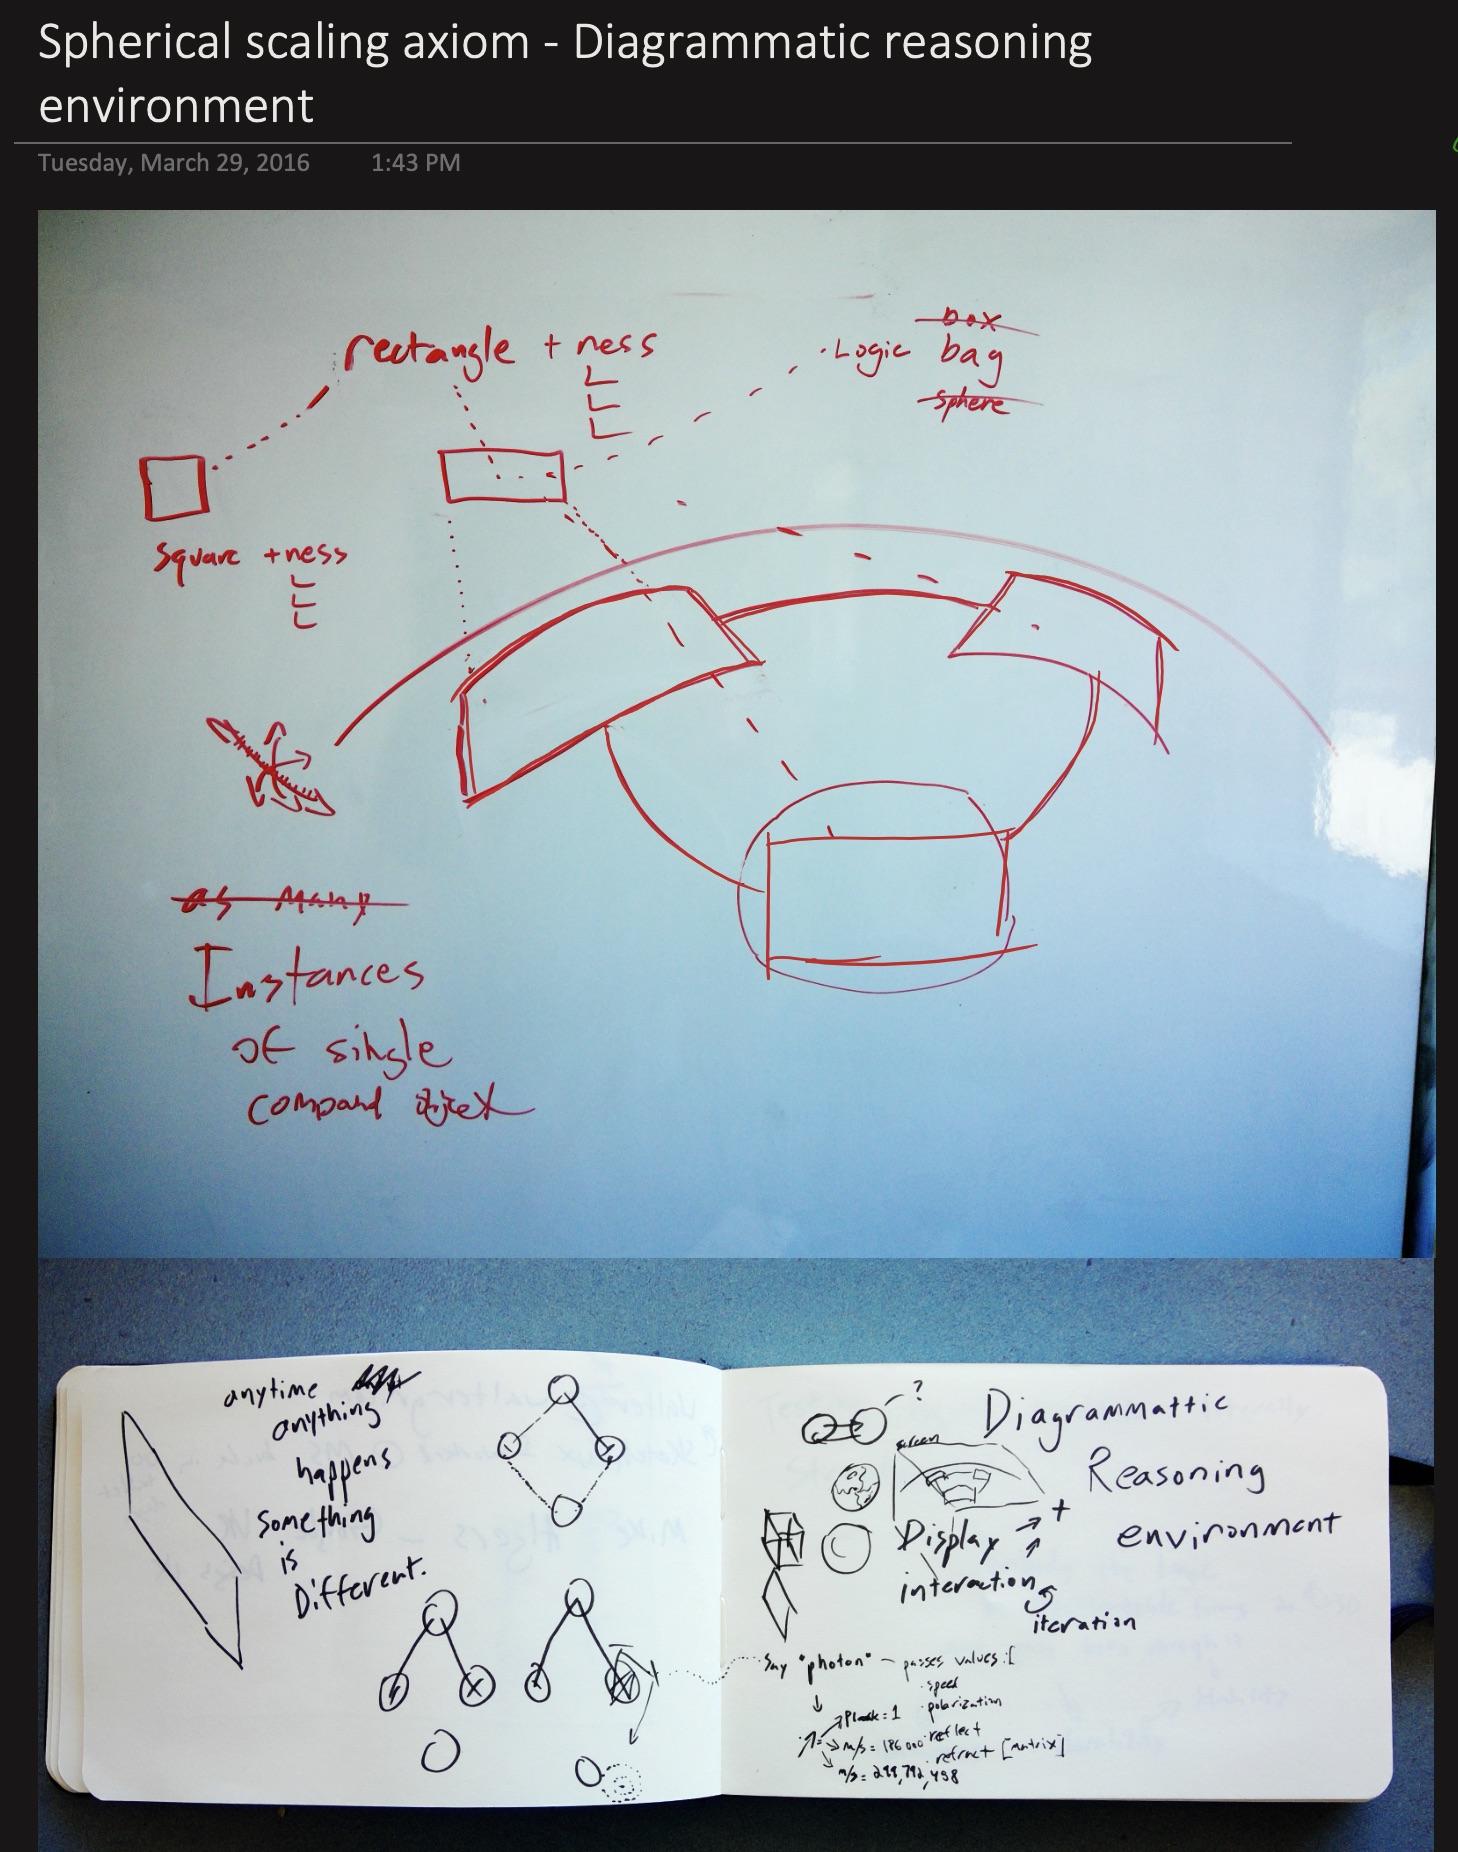 Spherical scaling axiom - Diagrammatic reasoning
environment
Tuesday, March 29, 2016 1:43 PM
rectangle + ness
Logic
box
bag
sphere
square + ness
as Many
Instances
of single
compound object
anytime
anything
happens
something
is
Different.
?
Diagrammattic
Reasoning
environment
screen
Display +
interaction
iteration
Say "photon" - passes values:[
speed
polarization
reflect
refract [matrix]
Plank = 1
m/s = 186 000
m/s = 299,792,458